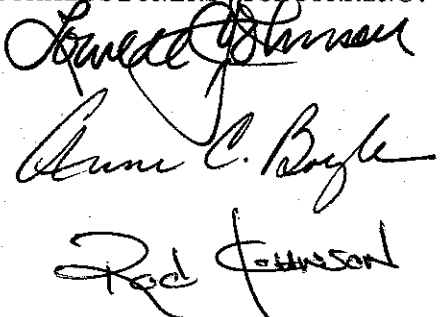 Lowell Johnson
Anne C. Boyle
Rod Johnson